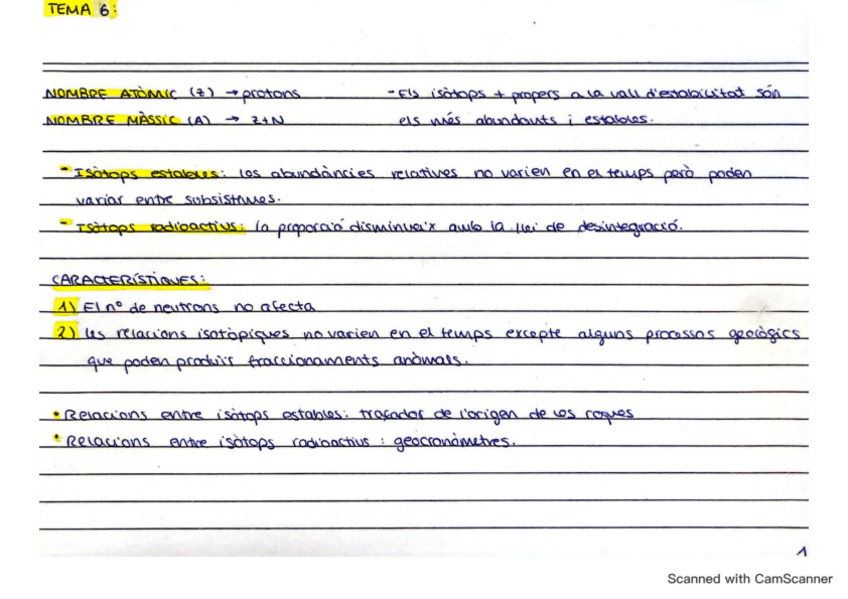 TEMA 6:
NOMBRE ATÒMIC (Z) → protons
- Els isòtops + propers a la vall d'estabilitat són
NOMBRE MÀSSIC (A) → Z+N
els més abundants i estables.
- Isòtops estables: les abundàncies relatives no varien en el temps però poden
variar entre subsistemes.
- Isòtops radioactius: la proporció disminueix amb la llei de desintegració.
CARACTERÍSTIQUES:
1) El nº de neutrons no afecta
2) Les relacions isotòpiques no varien en el temps excepte alguns processos geològics
que poden produir fraccionaments anòmals.
• Relacions entre isòtops estables: traçador de l'origen de les roques
• Relacions entre isòtops radioactius: geocronòmetres.
1
Scanned with CamScanner